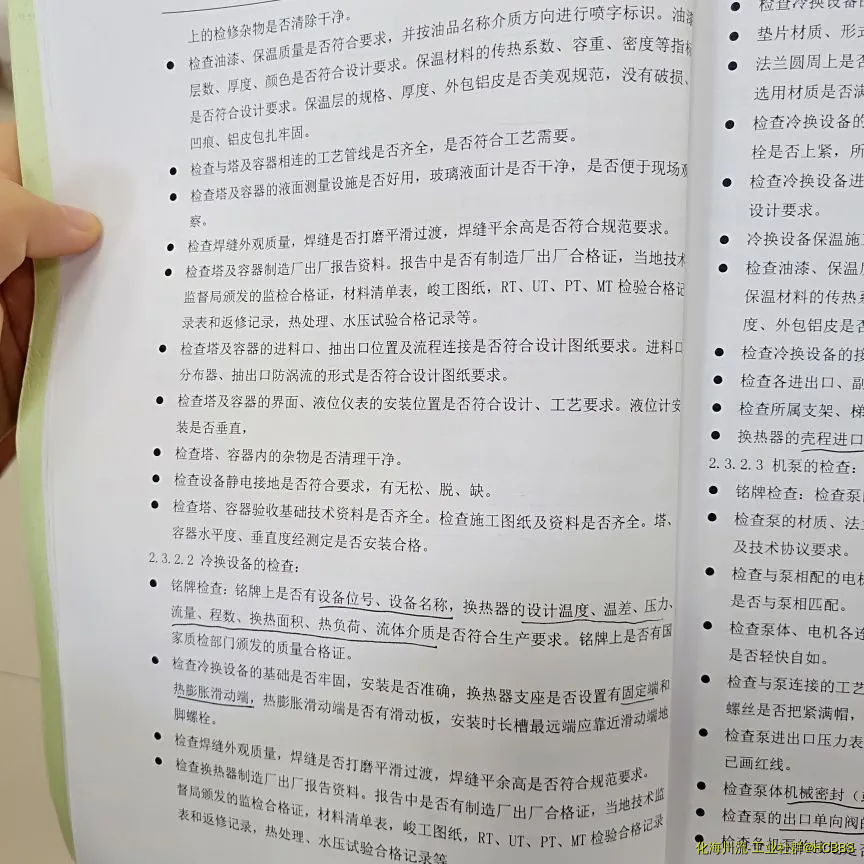 上的检修杂物是否清除干净。
● 检查油漆、保温质量是否符合要求，并按油品名称介质方向进行喷字标识。油漆
层数、厚度、颜色是否符合设计要求。保温材料的传热系数、容重、密度等指标
是否符合设计要求。保温层的规格、厚度、外包铝皮是否美观规范，没有破损、
凹痕、铝皮包扎牢固。
● 检查与塔及容器相连的工艺管线是否齐全，是否符合工艺需要。
● 检查塔及容器的液面测量设施是否好用，玻璃液面计是否干净，是否便于现场观
察。
● 检查焊缝外观质量，焊缝是否打磨平滑过渡，焊缝平余高是否符合规范要求。
● 检查塔及容器制造厂出厂报告资料。报告中是否有制造厂出厂合格证，当地技术
监督局颁发的监检合格证，材料清单表，峻工图纸，RT、UT、PT、MT 检验合格记
录表和返修记录，热处理、水压试验合格记录等。
● 检查塔及容器的进料口、抽出口位置及流程连接是否符合设计图纸要求。进料口
分布器、抽出口防涡流的形式是否符合设计图纸要求。
● 检查塔及容器的界面、液位仪表的安装位置是否符合设计、工艺要求。液位计安
装是否垂直，
● 检查塔、容器内的杂物是否清理干净。
● 检查设备静电接地是否符合要求，有无松、脱、缺。
● 检查塔、容器验收基础技术资料是否齐全。检查施工图纸及资料是否齐全。塔、
容器水平度、垂直度经测定是否安装合格。
2.3.2.2 冷换设备的检查：
● 铭牌检查：铭牌上是否有设备位号、设备名称，换热器的设计温度、温差、压力、
流量、程数、换热面积、热负荷、流体介质是否符合生产要求。铭牌上是否有国
家质检部门颁发的质量合格证。
● 检查冷换设备的基础是否牢固，安装是否准确，换热器支座是否设置有固定端和
热膨胀滑动端，热膨胀滑动端是否有滑动板，安装时长槽最远端应靠近滑动端地
脚螺栓。
● 检查焊缝外观质量，焊缝是否打磨平滑过渡，焊缝平余高是否符合规范要求。
● 检查换热器制造厂出厂报告资料。报告中是否有制造厂出厂合格证，当地技术监
督局颁发的监检合格证，材料清单表，峻工图纸，RT、UT、PT、MT 检验合格记录
表和返修记录，热处理、水压试验合格记录等
● 检查冷换设备的
● 垫片材质、形式
● 法兰圆周上是否
选用材质是否满
● 检查冷换设备的
栓是否上紧，所
● 检查冷换设备进
设计要求。
● 冷换设备保温施工
● 检查油漆、保温质
保温材料的传热系
度、外包铝皮是否
● 检查冷换设备的接
● 检查各进出口、副
● 检查所属支架、梯
● 换热器的壳程进口
2.3.2.3 机泵的检查：
● 铭牌检查：检查泵
● 检查泵的材质、法兰
及技术协议要求。
● 检查与泵相配的电机
是否与泵相匹配。
● 检查泵体、电机各连
是否轻快自如。
● 检查与泵连接的工艺
螺丝是否把紧满帽，
● 检查泵进出口压力表
已画红线。
● 检查泵体机械密封（
● 检查泵的出口单向阀的